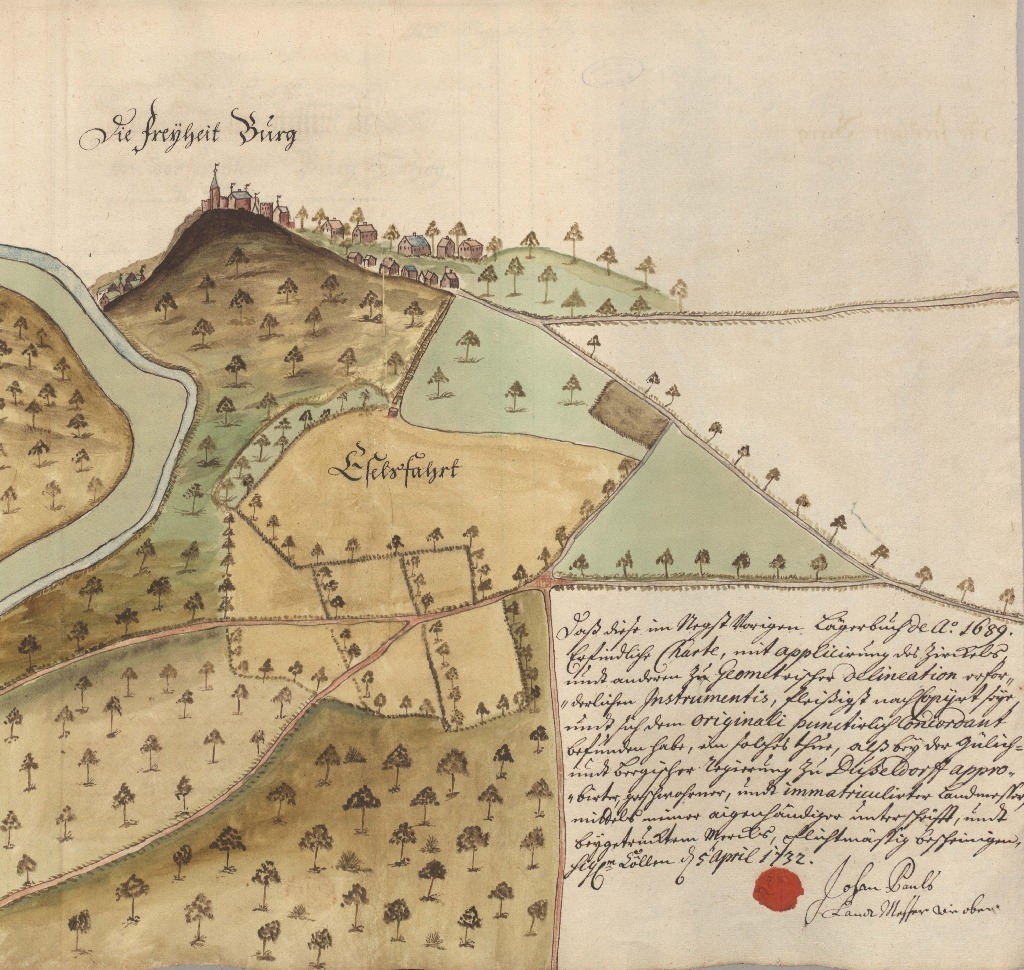 Die Freÿheit Burg
Eselsfahrt
Daß diese im Negst Vorigen Lägerbuch de Aº 1689.
befindliche Charte, mit applicirung des Zirckels
undt anderen zu Geometrischer delineation erfor-
"derlichen Instrumentis, fleißigst nachCopÿrt
undt sich dem originali punctirlich Concordant
befunden habe, ein solches thue, alß beÿ der Gülich-
undt bergischer regierung zu Düßeldorff appro-
"birter geschwohrner, undt immatriculirter Landmesser
mittels meiner aigenhändiger unterschrifft, undt
beÿgetrucktem Mercks, pflichtmässig bescheinigen,
Cöllen d 5 April 1732.
Johan Pauls
Landt Messer wie oben